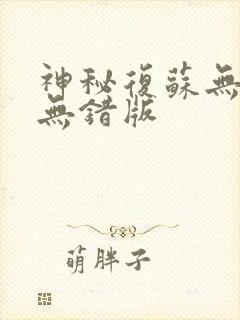 神秘復蘇無
無錯版
萌胖子